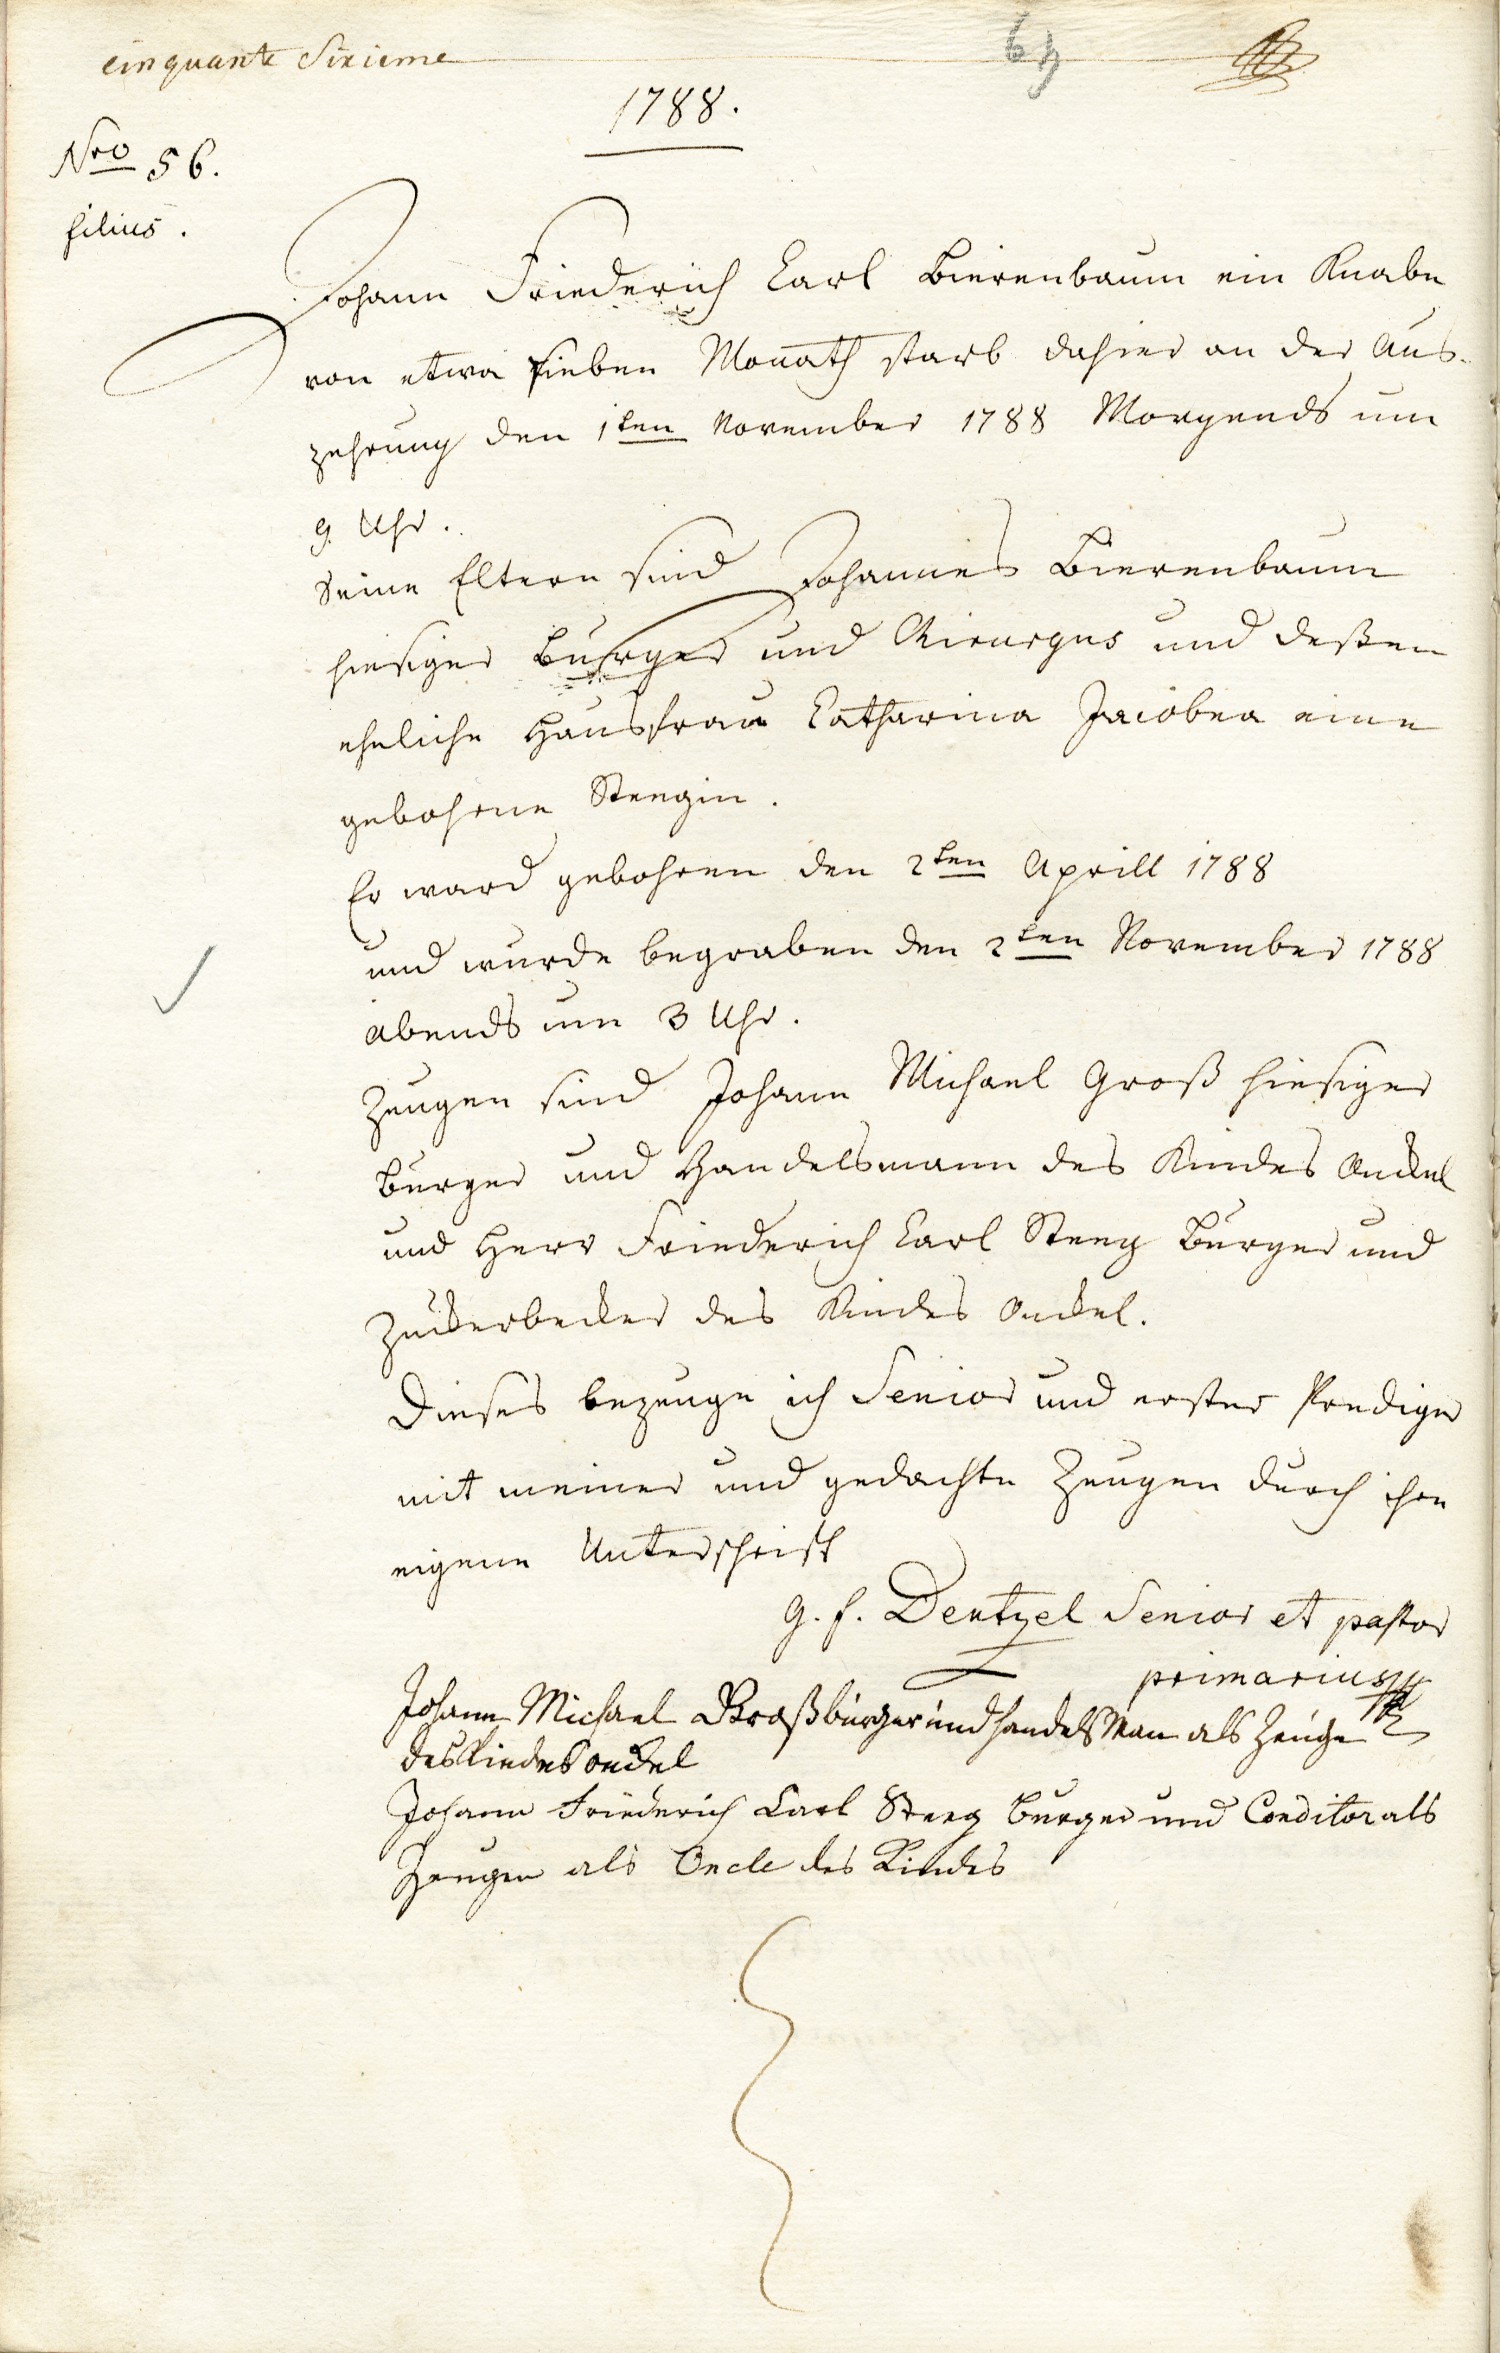 cinquante Sixieme
1788.
Nro 56.
filius.
Johann Friederich Carl Bierenbaum ein Knabe
von etwa sieben Monath starb dahier an der Aus-
zehrung den 1ten November 1788 Morgends um
9. Uhr.
Seine Eltern sind Johannes Bierenbaum
hiesiger Burger und Chirurgus und deßen
eheliche Hausfrau Catharina Jacobea eine
gebohrne Steegin.
Er ward gebohren den 2ten Aprill 1788
und wurde begraben den 2ten November 1788
abends um 3 Uhr.
Zeugen sind Johann Michael Groß hiesiger
Burger und Handelsmann des Kindes Onckel
und Herr Friederich Carl Steeg Burger und
Zuckerbecker des Kindes Onckel.
Dieses bezeuge ich Senior und erster Prediger
mit meiner und gedachte Zeugen durch ihre
eigene Unterschrift
G. F. Dentzel Senior et pastor
primarius
Johann Michael Groß bürger und handels Man als Zeuge
des Kindes onckel
Johann Friederich Carl Steeg Burger und Conditor als
Zeugen als Oncle des Kindes